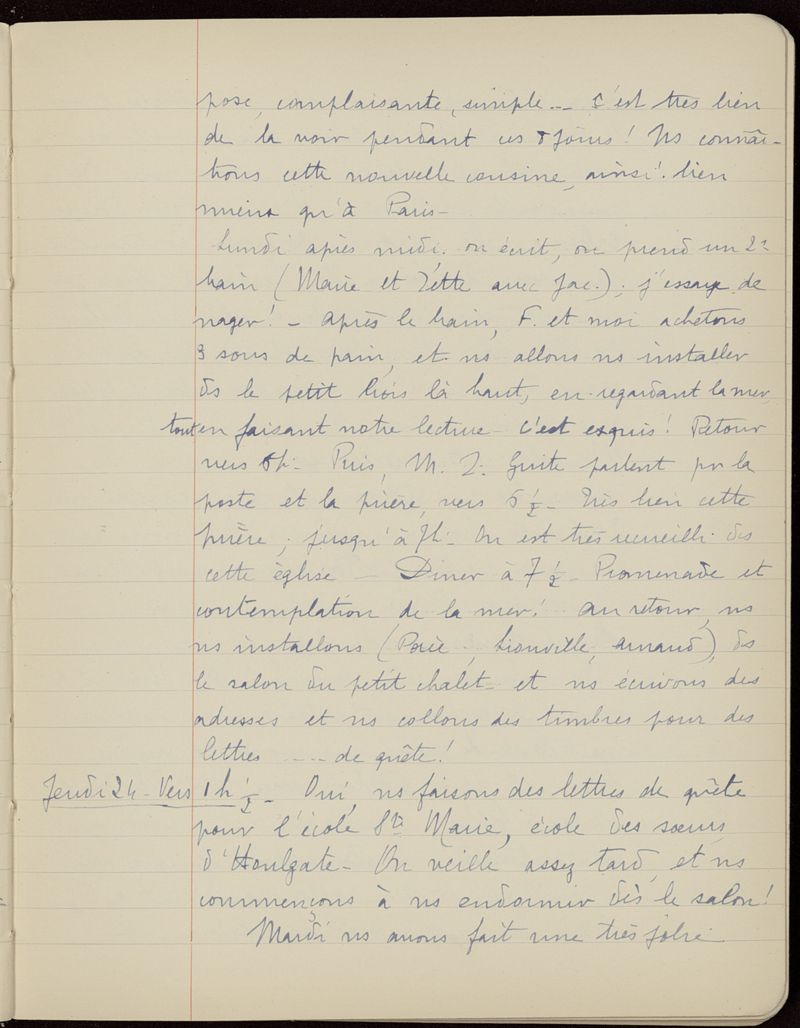 pose, complaisante, simple -- C'est très bien
de la voir pendant ces 8 jours ! Ns connaî-
trons cette nouvelle cousine, ainsi ! bien
mieux qu'à Paris -
Lundi après midi. on écrit, on prend un 2e
bain (Marie et Zette avec Jac.) ; j'essaye de
nager ! - Après le bain, F. et moi achetons
3 sous de pain, et ns allons ns installer
ds le petit bois là haut, en regardant la mer,
tout en faisant notre lecture - C'est exquis ! Retour
vers 5h - Puis, M. Z. Guite partent pr la
poste et la prière, vers 6 1/2 - Très bien cette
prière ; jusqu'à 7h - On est très recueilli ds
cette église - Dîner à 7 1/2 - Promenade et
contemplation de la mer ! Au retour, ns
ns installons (Poiré, Lionville, Arnaud), ds
le salon du petit chalet - et ns écrivons des
adresses et ns collons des timbres pour des
lettres ---- de quête !
Jeudi 24 - Vers 1h 1/2 - Oui, ns faisons des lettres de quête
pour l'école Ste Marie, école des sœurs
d'Houlgate - On veille assez tard, et ns
commençons à ns endormir dès le salon !
Mardi ns avons fait une très jolie